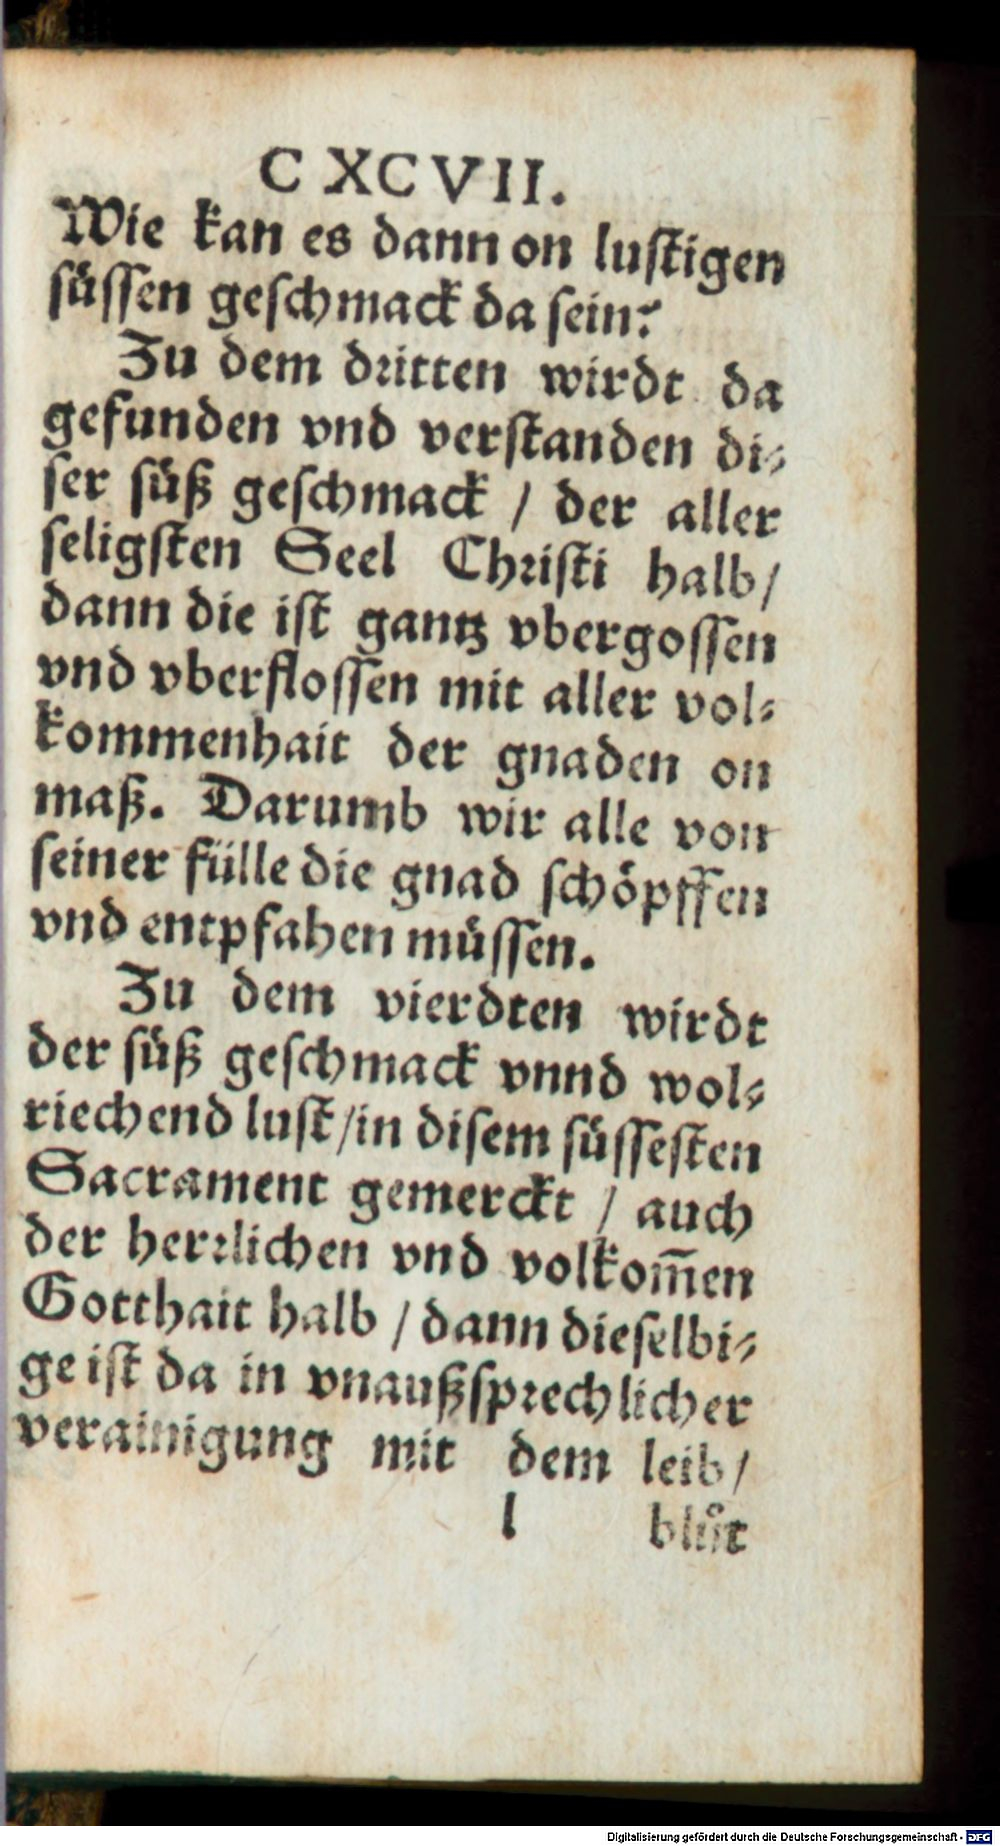 CXCVII.
Wie kan es dann on lustigen
süssen geschmack da sein?
Zu dem dritten wirdt da
gefunden vnd verstanden di⸗
ser süß geschmack / der aller
seligsten Seel Christi halb/
dann die ist gantz vbergossen
vnd vberflossen mit aller vol⸗
kommenhait der gnaden on
maß. Darumb wir alle von
seiner fülle die gnad schöpffen
vnd entpfahen müssen.
Zu dem vierdten wirdt
der süß geschmack vnnd wol⸗
riechend lust/in disem süssesten
Sacrament gemerckt / auch
der herꝛlichen vnd volkom̃en
Gotthait halb / dann dieselbi⸗
ge ist da in vnaußsprechlicher
verainigung mit dem leib/
l blůt
Digitalisierung gefördert durch die Deutsche Forschungsgemeinschaft - DFG